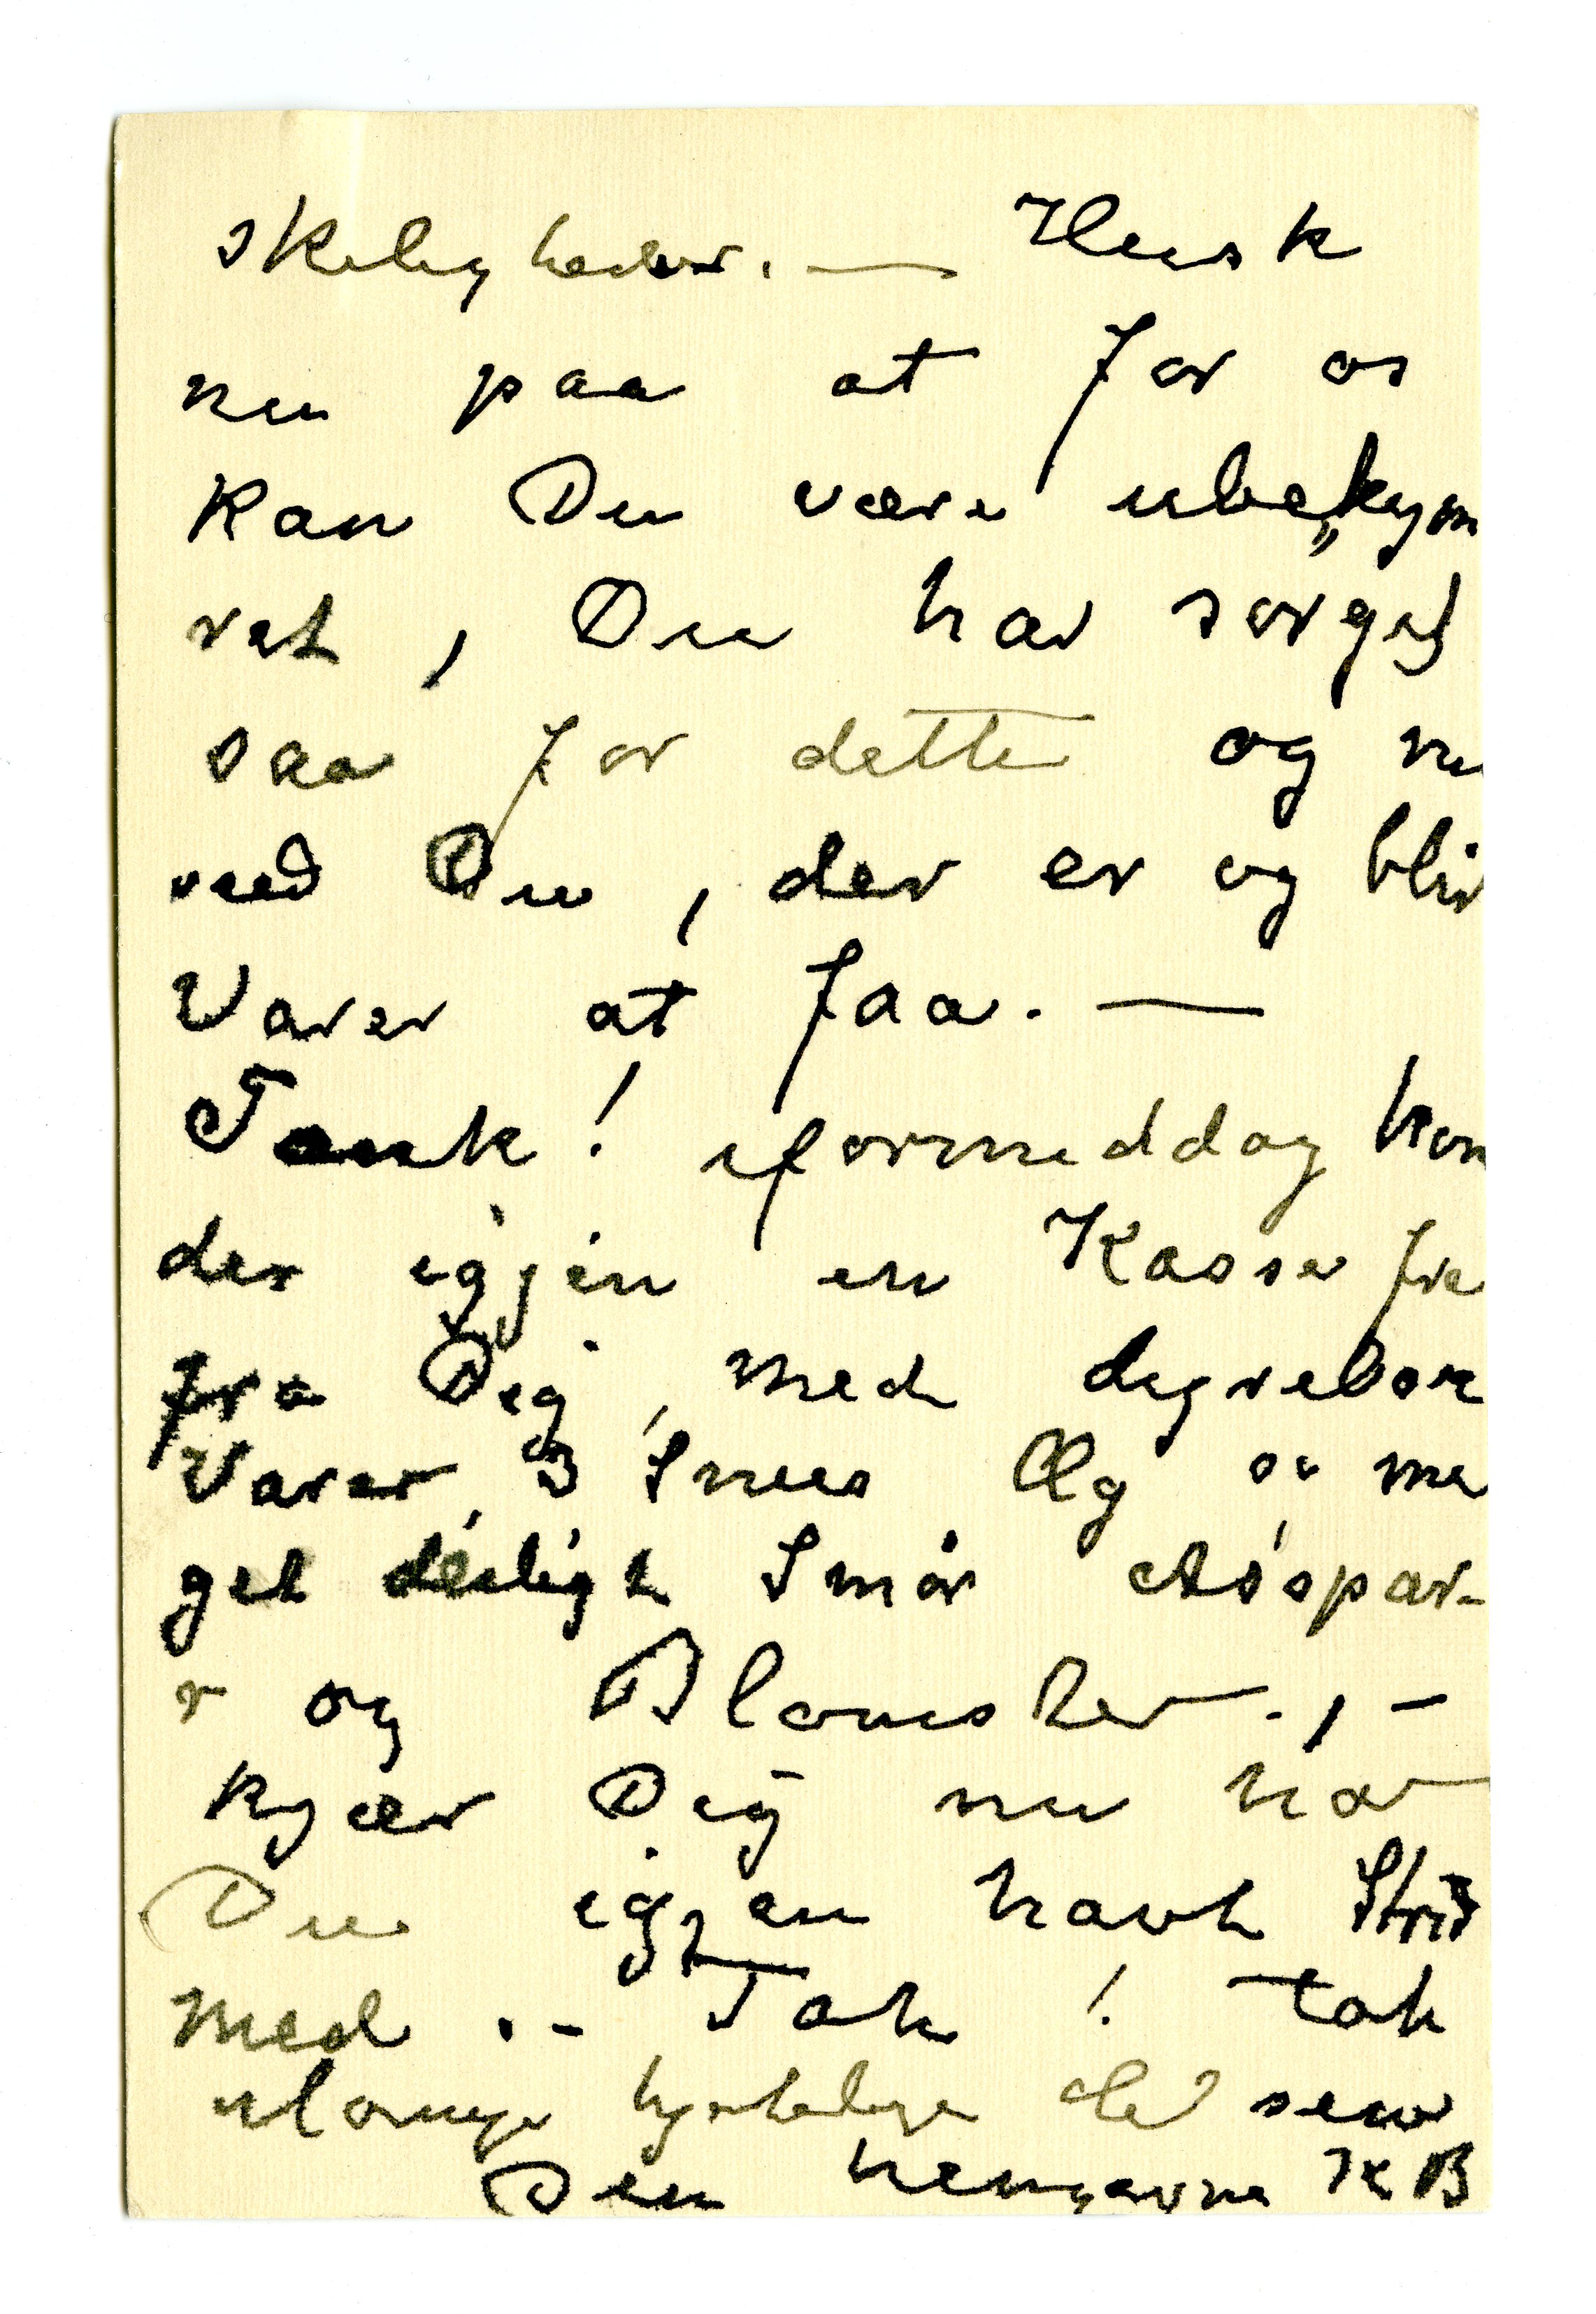 skeligheder. — Husk
nu paa at for os
kan Du være ubekym
ret, Du har sørget
saa for dette og nu
veed Du, der er og bliv
Varer at faa. —
Tænk! iformiddag kom
der igjen en Kasse fra
fra Dig, med dyrebare
Varer, 3 Snees Æg og me
get deiligt Smør Aspar-
r og Blomster., -
kjær Dig nu har
Du igjen havt Strid
med .- Tak! tak
mange hjertelige
Den hengivne